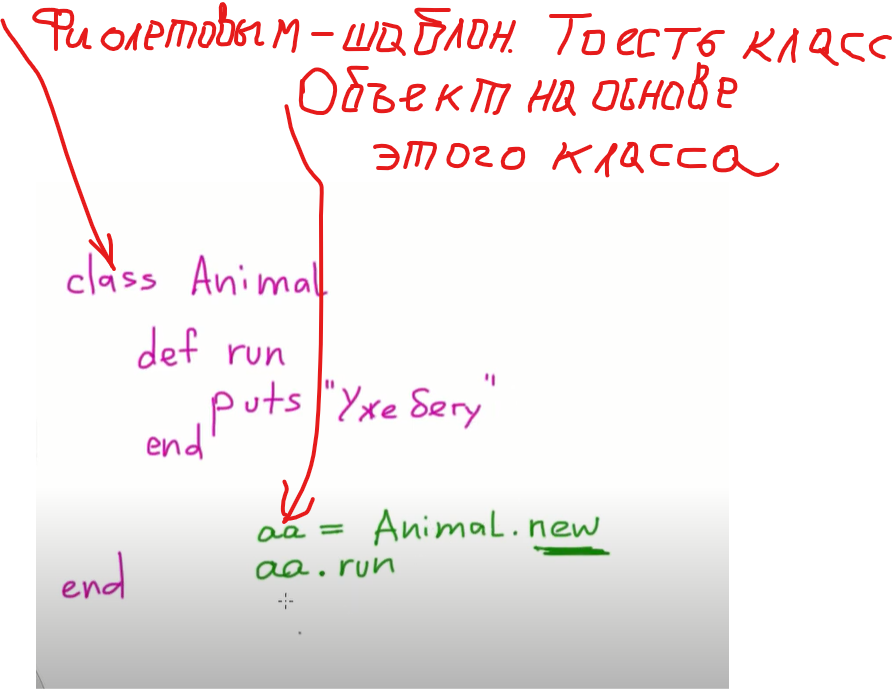 Фиолетовым - шаблон. Тоесть класс
Объект на основе
этого класса
class Animal
def run
puts "Уже бегу"
end
aa = Animal.new
aa.run
end